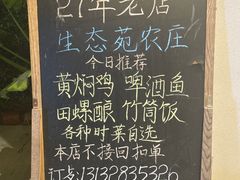 27年老店
生态苑农庄
今日推荐
黄焖鸡 啤酒鱼
田螺酿 竹筒饭
各种时菜自选
本店不接回扣单
订点:13132835326